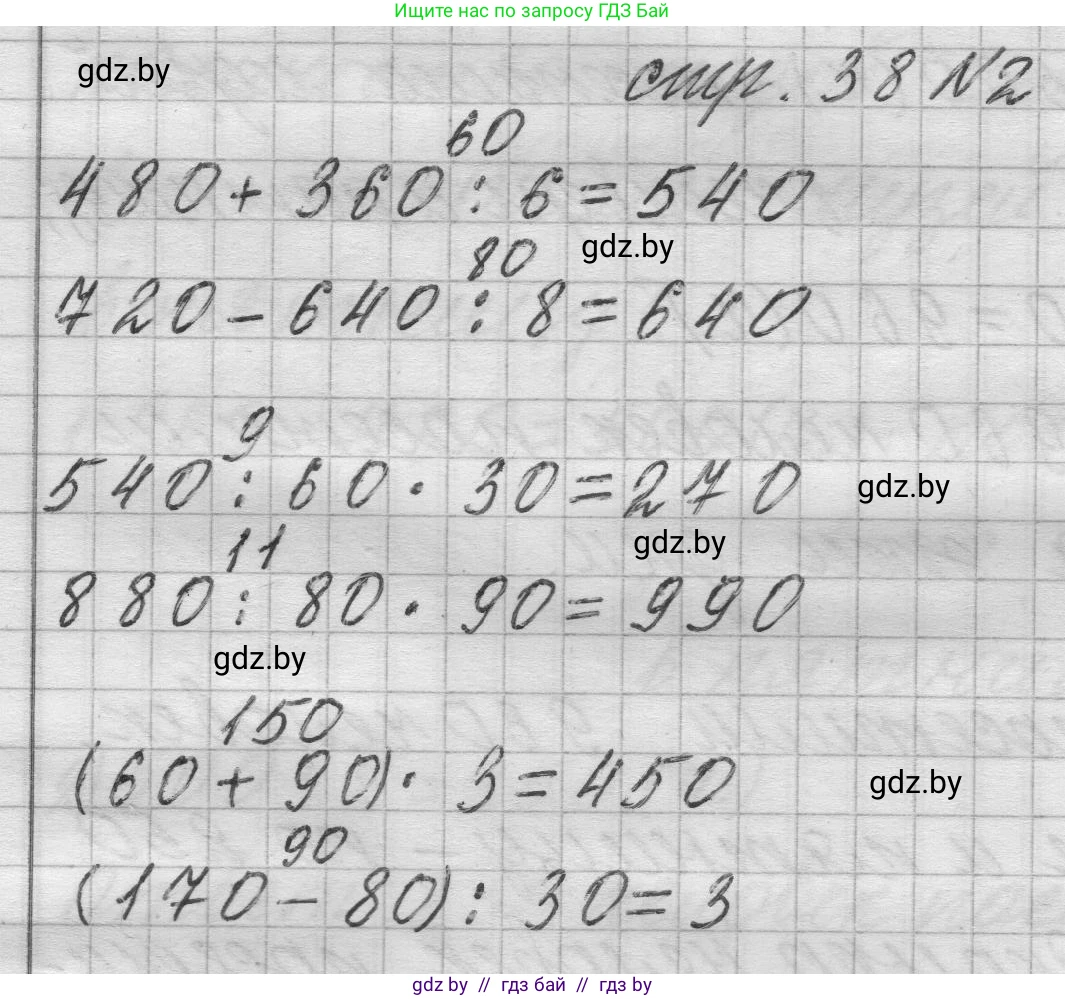 Ищите нас по запросу ГДЗ Бай
gdz.by стр. 38 №2
60
480 + 360 : 6 = 540
80 gdz.by
720 - 640 : 8 = 640
9
540 : 60 · 30 = 270 gdz.by
11 gdz.by
880 : 80 · 90 = 990
gdz.by
150
(60 + 90) · 3 = 450 gdz.by
90
(170 - 80) : 30 = 3
gdz by // гдз бай // gdz by